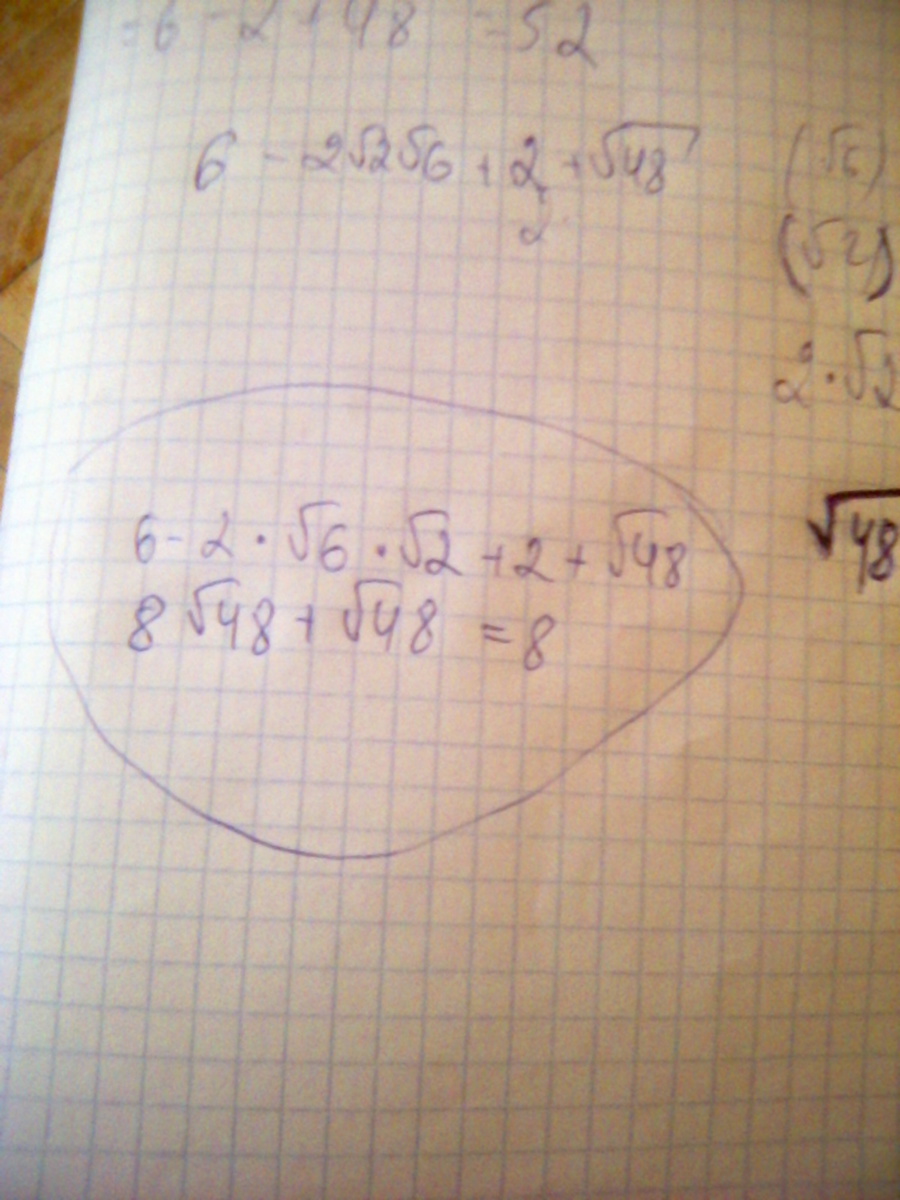 = 6 - 2 + 48 = 52
6 - 2√2√6 + 2 + √48
2
(√6)
(√2)
2·√2
√48
6 - 2 · √6 · √2 + 2 + √48
8 √48 + √48 = 8